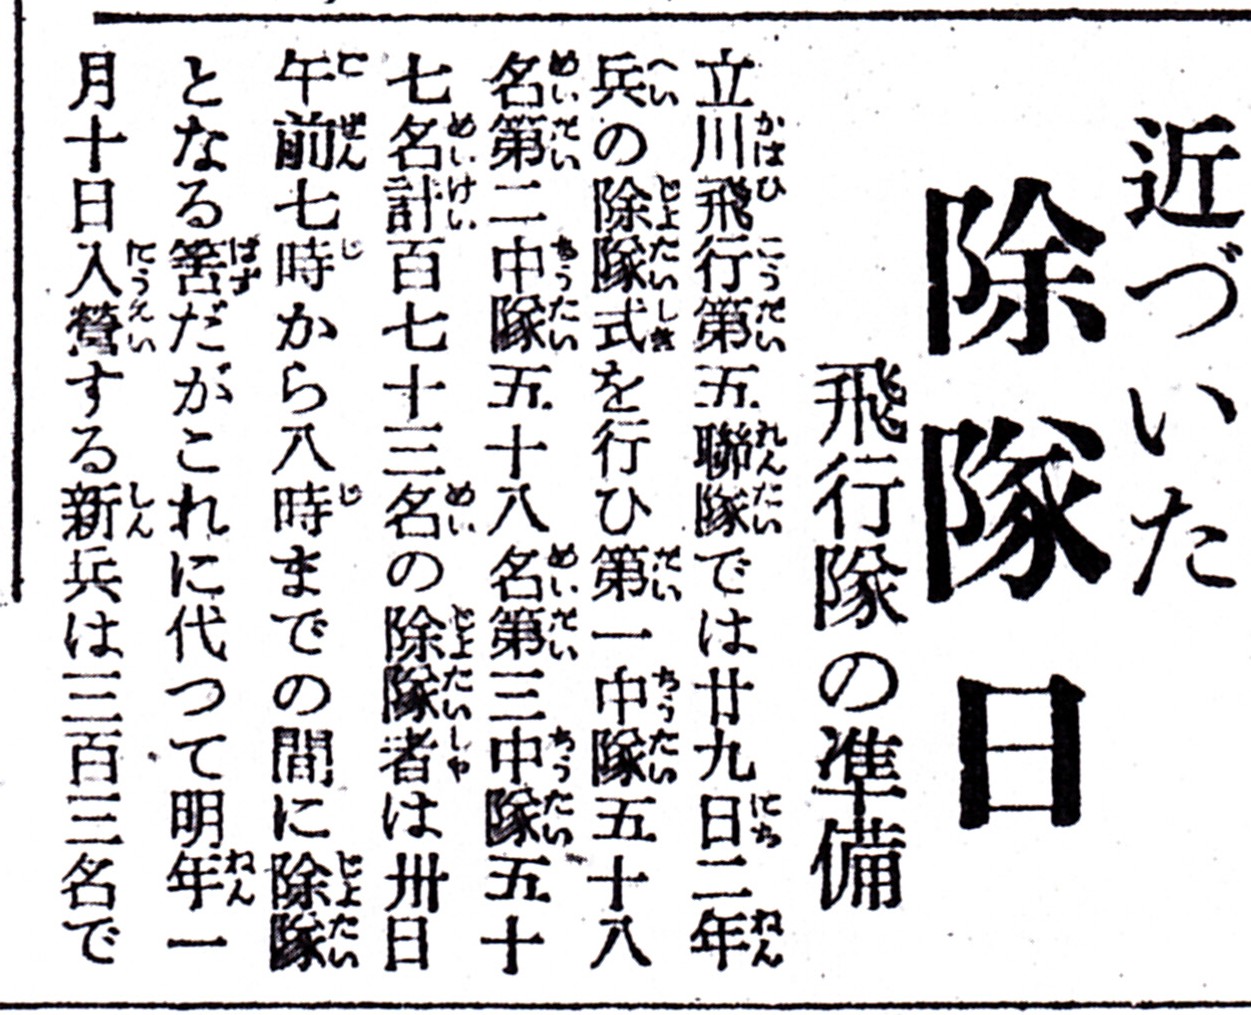 近づいた
除隊日
飛行隊の準備
立川飛行第五聯隊では廿九日二年
兵の除隊式を行ひ第一中隊五十八
名第二中隊五十八名第三中隊五十
七名計百七十三名の除隊者は卅日
午前七時から八時までの間に除隊
となる筈だがこれに代つて明年一
月十日入營する新兵は三百三名で